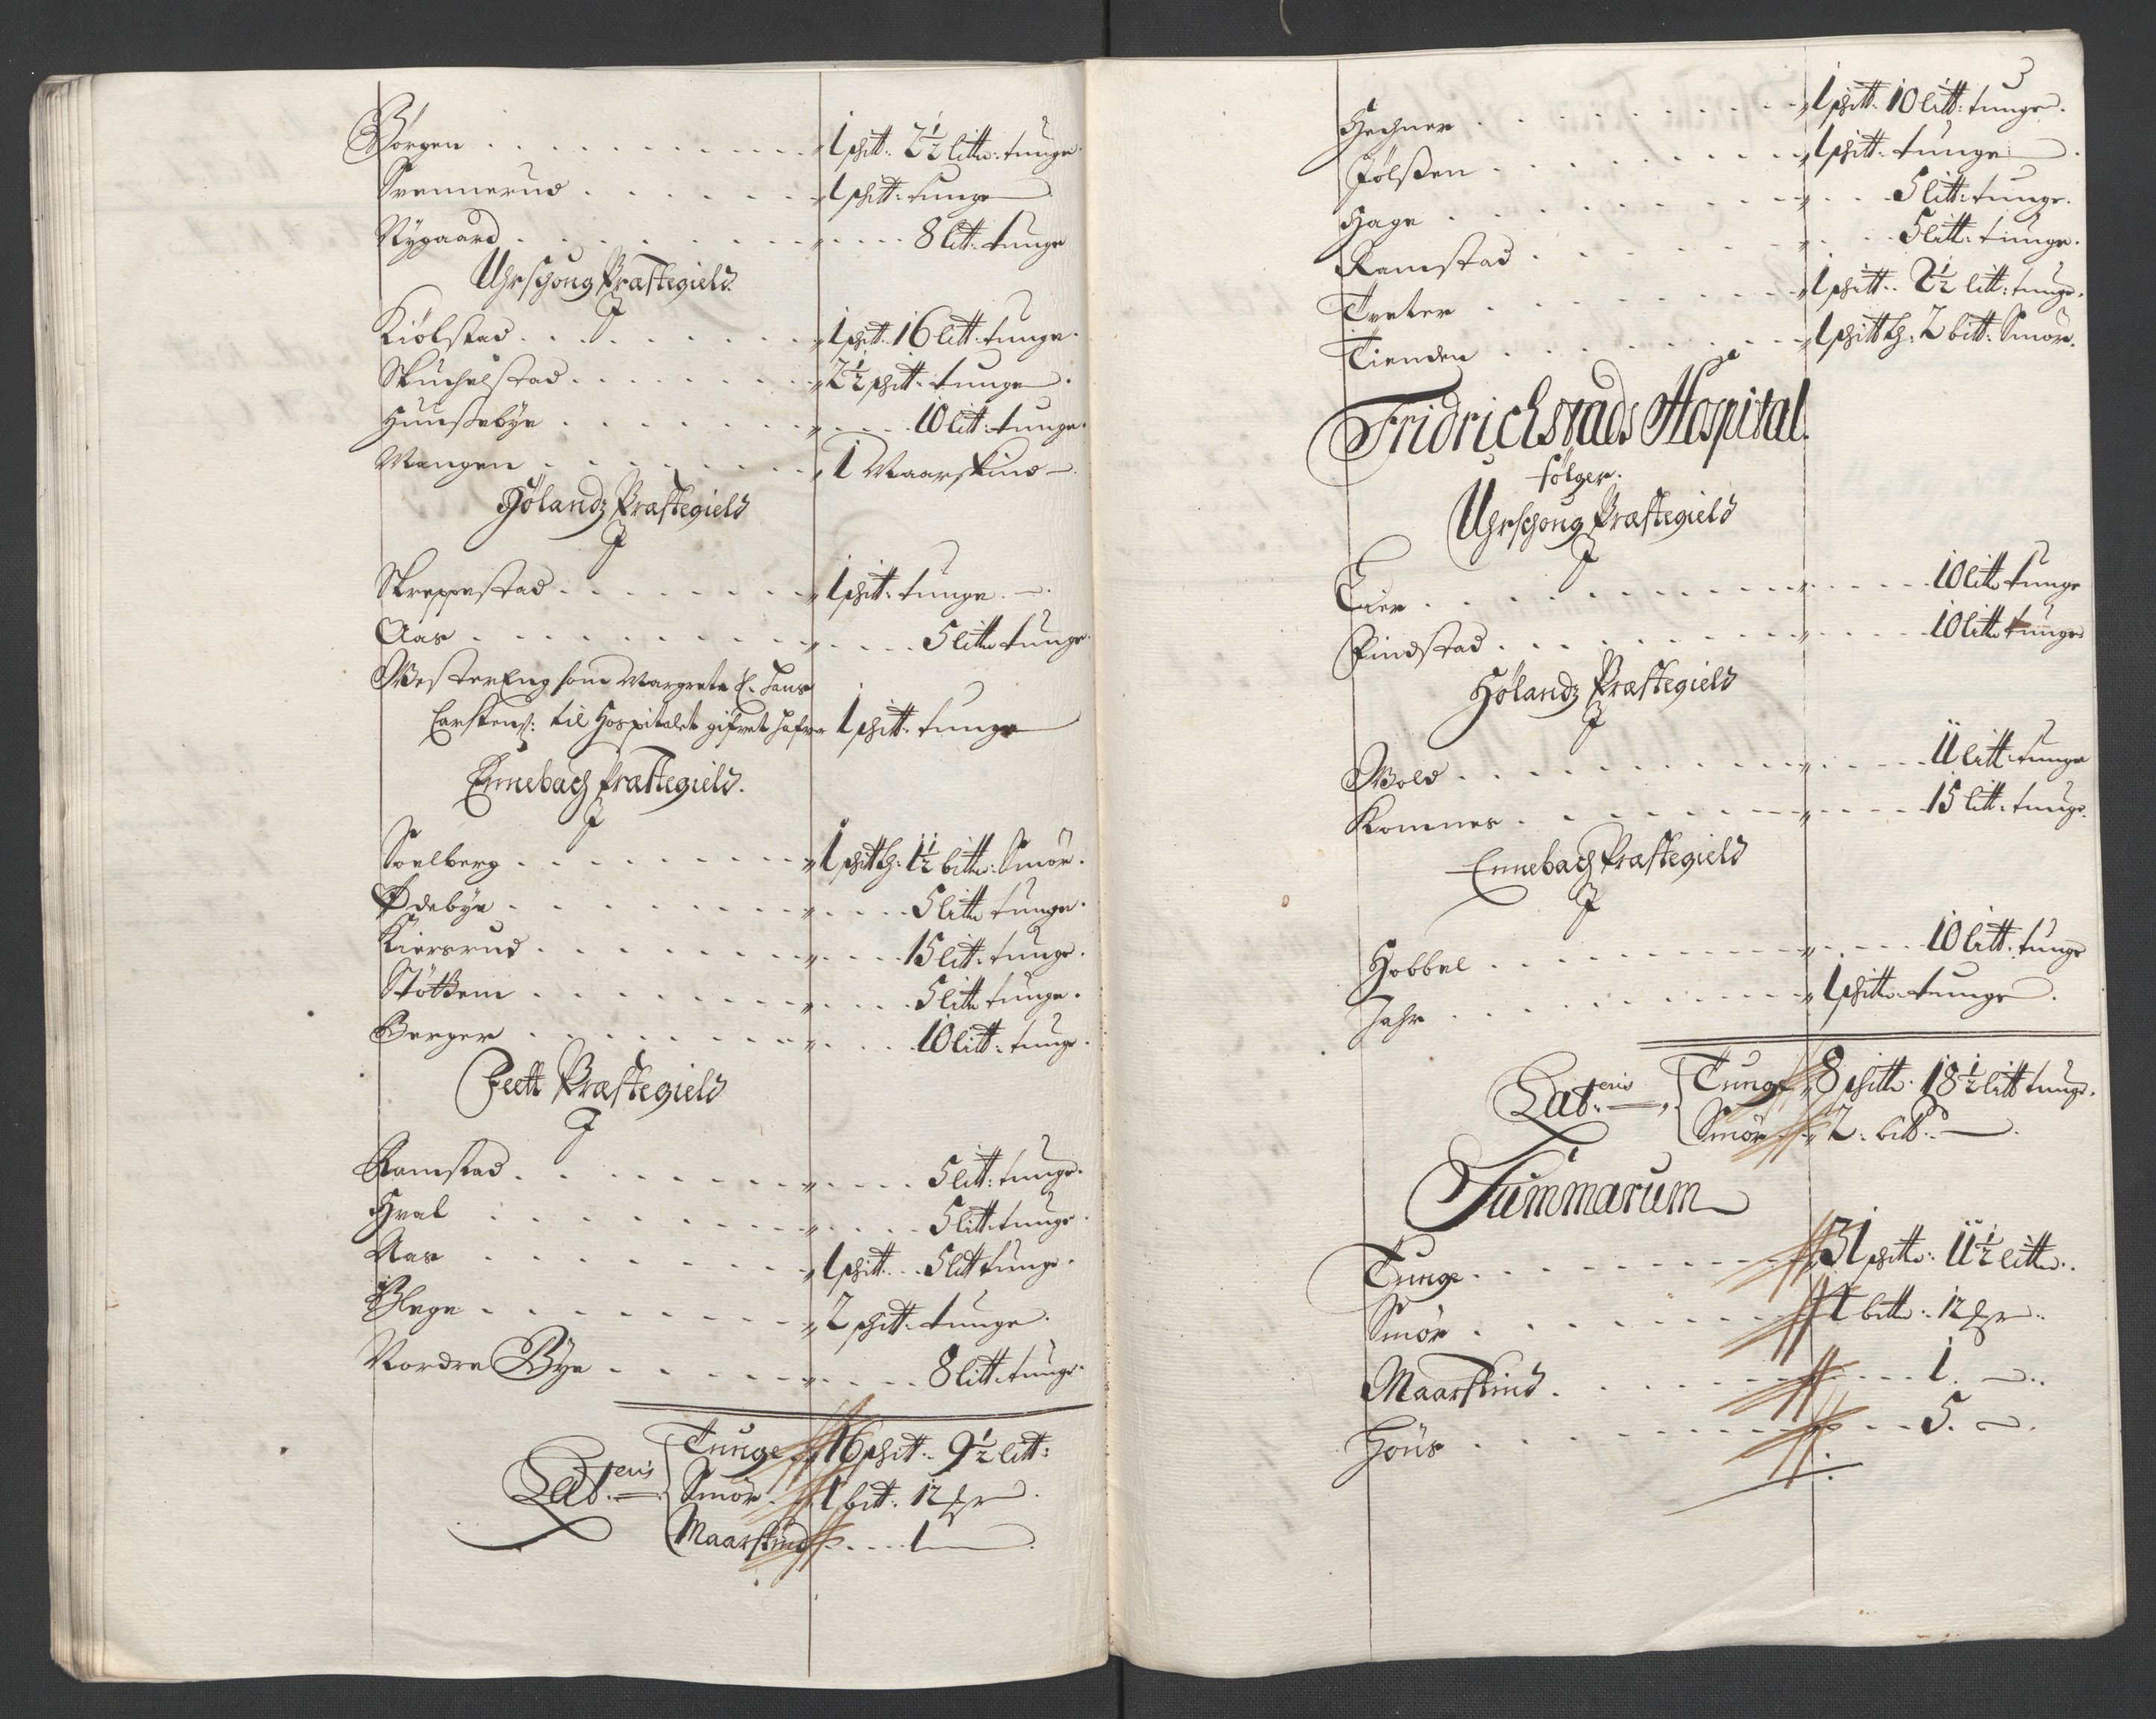 Børgen . . . . . . . . . . „ 1 schtt: 2½ litt: tunge.
Svennerud . . . . . . „ 1 schtt: tunge
Nygaard . . . . . . . . „ . . . . 8 litt: tunge
Uhrschoug Præstegield.
J
Kiölstad . . . . . . . . „ 1 schtt: 16 litt: tunge.
Skuchelstad . . . . . . . „ 2½ schtt: tunge.
Huusebye . . . . . . . „ . . . . 10 litt: tunge.
Mangen . . . . . . . . „ 1 Maarskind
Hölandz Præstegield
J
Skreppestad . . . . . . . „ 1 schtt: tunge.
Aas . . . . . . . . . . „ . . . . 5 litt: tunge.
Westereng som Margrete Sl. Jans
Carstens: til Hospitalet gifvet hafver 1 schtt: tunge
Ennebach Præstegield.
J
Soelberg . . . . . . . . „ 1 schtth: 1½ bitt: Smör.
Ödebye . . . . . . . . „ . . . . 5 litt: tunge.
Kiersrud . . . . . . . . „ . . . . 15 litt: tunge.
Stöttem . . . . . . . . „ . . . . 5 litt: tunge.
Berger . . . . . . . . . „ . . . . 10 litt: tunge.
Feett Præstegield
J
Ramstad . . . . . . . „ . . . . 5 litt: tunge.
Hval . . . . . . . . . „ . . . . 5 litt: tunge.
Aas . . . . . . . . . „ 1 schtt: . . 5 litt tunge.
Blege . . . . . . . . . „ 2 schtt: tunge.
Nordre Bye . . . . . . „ . . . . 8 litt: tunge.
Lat:eris Tunge „ 16 schtt: 9½ litt:
Smör . „ 1 bitt: 12 mr
Maarskind „ . . . . 1
3
Hechner . . . . . . . . „ 1 schtt: 10 litt: tunge.
Jölsen . . . . . . . . „ 1 schtt: tunge
Hage . . . . . . . . „ . . . 5 litt: tunge.
Ramstad . . . . . . „ . . . 5 litt: tunge.
Tveter . . . . . . . . „ 1 schtt: 2½ litt: tunge.
Tienden . . . . . . . „ 1 schtth: 2 bitt: Smör.
Fridrichstads Hospital
følger.
Uhrschoug Præstegield
J
Eier . . . . . . . . . . „ . . . . 10 litt: tunge
Findstad . . . . . . . „ . . . . 10 litt: tunge
Hölandz Præstegield
J
Wold . . . . . . . . . „ . . . . 11 litt: tunge
Komnes . . . . . . . „ . . . . 15 litt: tunge.
Ennebach Præstegield
J
Hobbel . . . . . . . . „ . . . . 10 litt: tunge
Jahr . . . . . . . . . „ 1 schtt: tunge.
Lat:eris Tunge „ 8 schtt: 18½ litt tunge.
Smör „ 2. bitt:
Summarum
Tunge . . . . . . . . „ 31 schtt: 11½ litt:
Smör . . . . . . . . „ 4 bitt: 12 mr:
Maarskind . . . . . . . „ . . . . 1.
Höns . . . . . . . . . „ . . . 5.